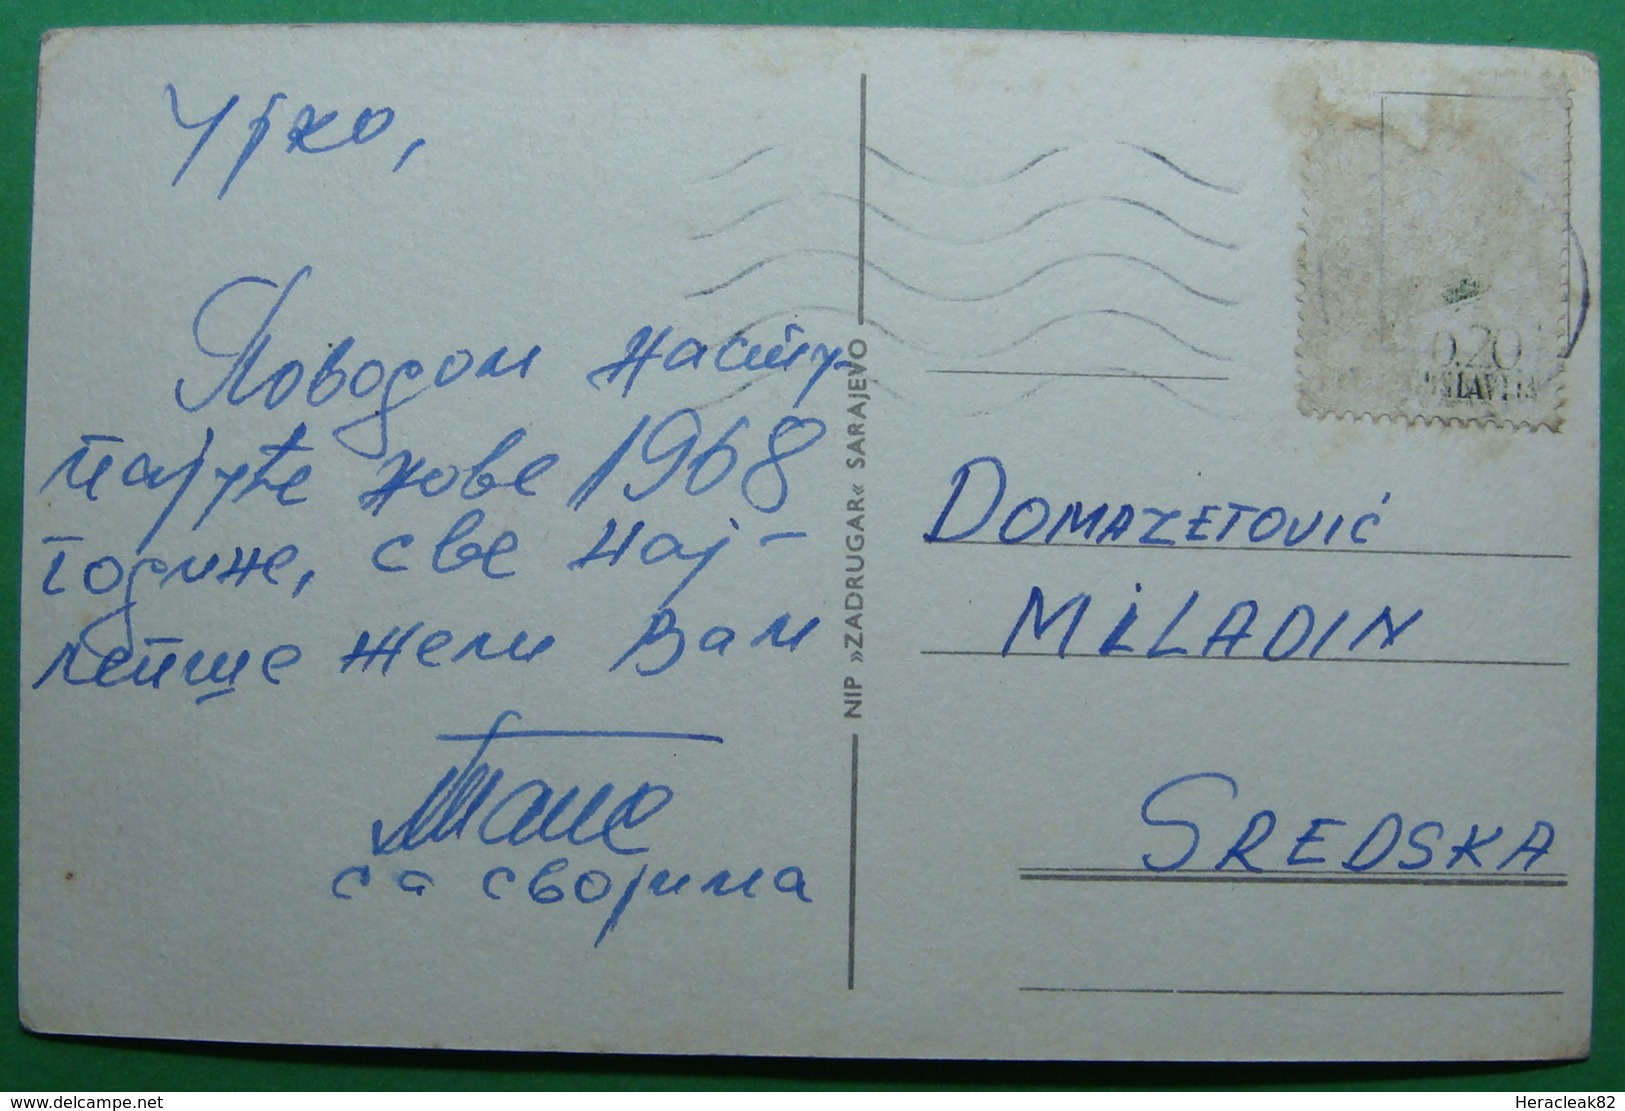 Поводом насту-
пајуће нове 1968
године, све нај-
лепше жели Вам
са својима
NIP »ZADRUGAR« SARAJEVO
0.20
DOMAZETOVIĆ
MILADIN
SREDSKA
delcampe.net
Heracleak82